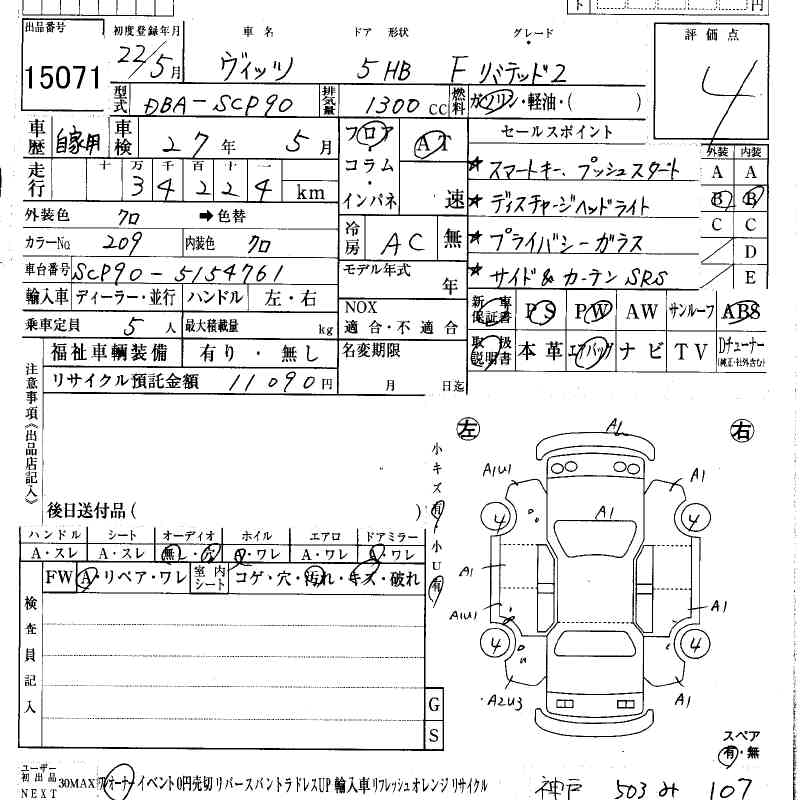 ト 円
出品番号 初度登録年月 車名 ドア 形状 グレード 評価点
15071 22/5月 ヴィッツ 5 HB F リミテッド2 4
型式 DBA-SCP90 排気量 1300CC 燃料 ガソリン・軽油・( )
車歴 自家用 車検 27年 5月 フロア・コラム・インパネ AT 速 セールスポイント 外装 内装
走行 十 万 千 百 十 一 34224 km ★スマートキー、プッシュスタート A A
外装色 クロ ➡色替 ★ディスチャージヘッドライト B B
カラーNo. 209 内装色 クロ 冷房 AC 無 ★プライバシーガラス C C D
車台番号 SCP90-5154761 モデル年式 年 ★サイド&カーテンSRS E
輸入車 ディーラー・並行 ハンドル 左・右 NOX 適合・不適合 新車保証書 PS PW AW サンルーフ ABS
乗車定員 5人 最大積載量 kg
福祉車輌装備 有り・無し 名変期限 月 日迄 取扱説明書 本革 エアバッグ ナビ TV Dチューナー(純正・社外含む)
リサイクル預託金額 11090円
注意事項《出品店記入》
後日送付品( )
小キズ有・小U有
左 右
AL
A1U1 A1
4 A1 4
A1
A1U1 A1
4 4
A2U3 A1
ハンドル シート オーディオ ホイル エアロ ドアミラー
A・スレ A・スレ 無し・穴 A・ワレ A・ワレ A・ワレ
FW A・リペア・ワレ 室内シート コゲ・穴・汚れ・キズ・破れ
検査員記入
G
S
スペア
有・無
ユーザー 初出品 NEXT 30MAX フォーナー イベント 0円売切 リバース バントラ ドレスUP 輸入車 リフレッシュ オレンジ リサイクル
神戸 503 み 107